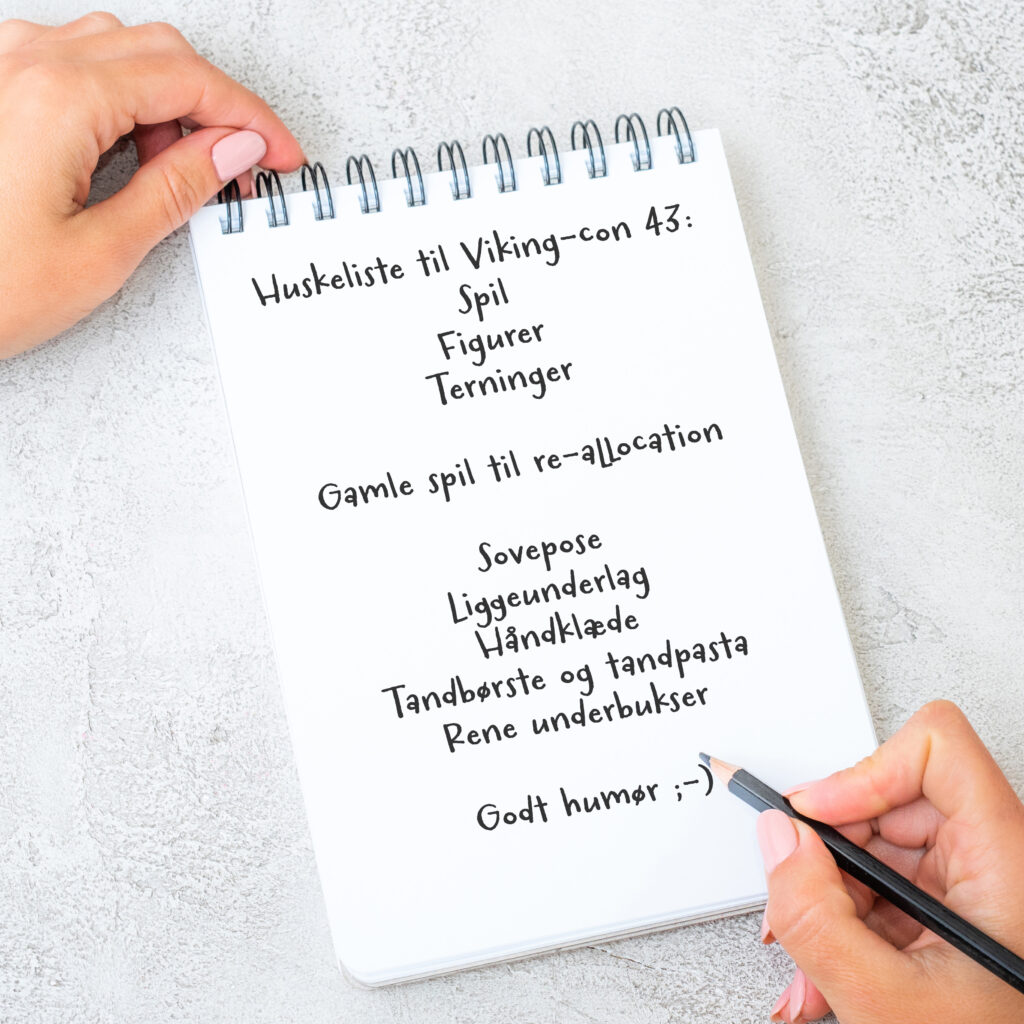 Huskeliste til Viking-con 43:
Spil
Figurer
Terninger
Gamle spil til re-allocation
Sovepose
Liggeunderlag
Håndklæde
Tandbørste og tandpasta
Rene underbukser
Godt humør ;-)